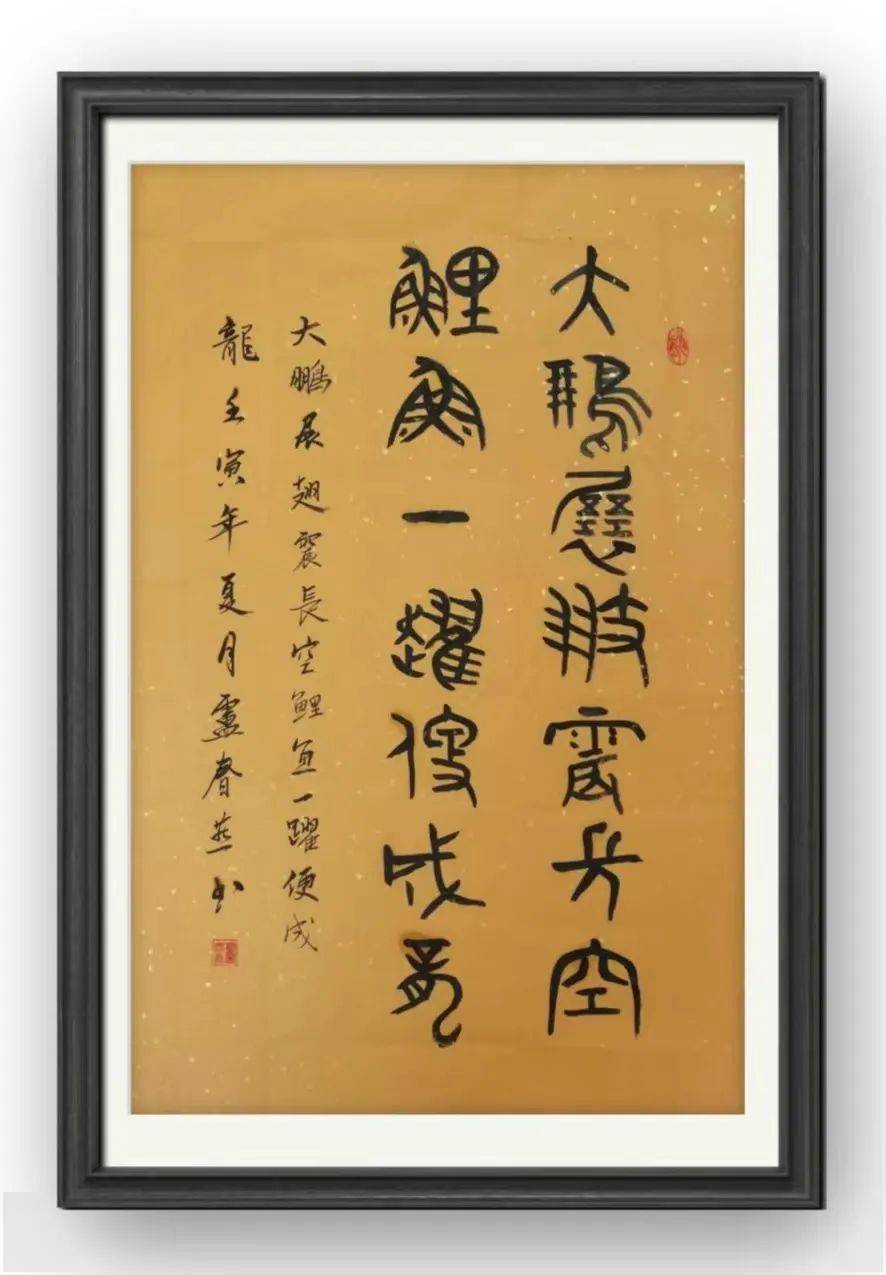 大鵬展翅震長空
鯉魚一躍便成龍
大鵬展翅震長空鯉魚一躍便成
龍壬寅年夏月盧春燕书